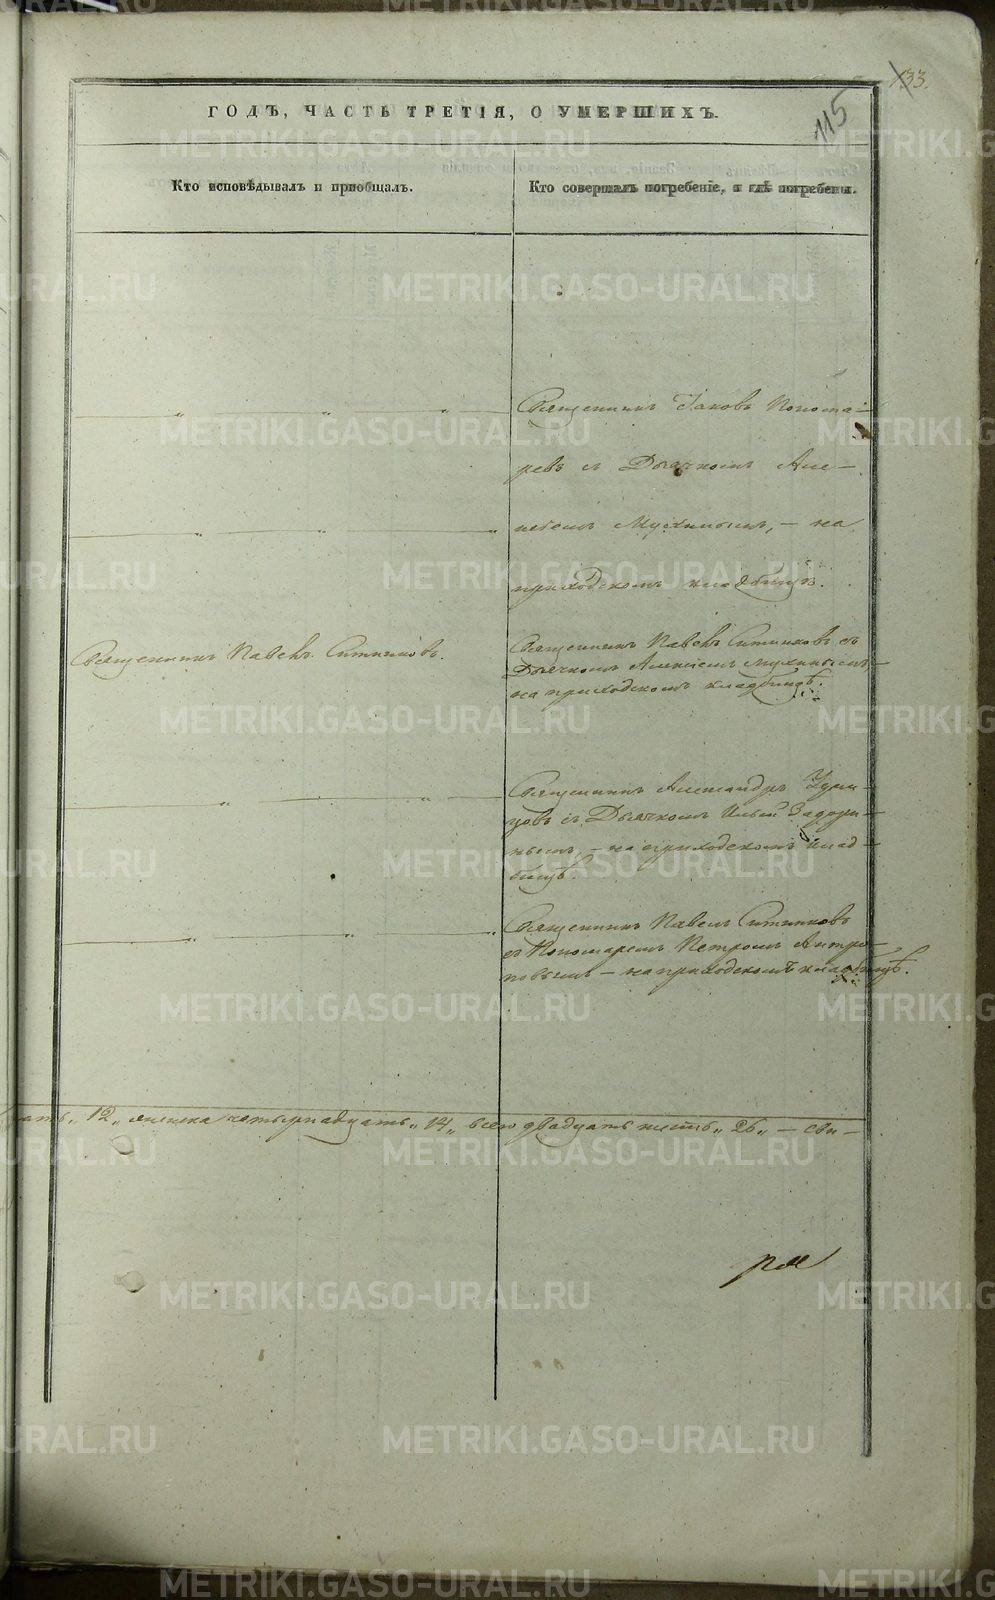 133.
115
ГОДЪ, ЧАСТЬ ТРЕТІЯ, О УМЕРШИХЪ.
Кто исповѣдывалъ и пріобщалъ.
Кто совершалъ погребеніе, и гдѣ погребены.
Священникъ Іаковъ Понома-
ревъ съ Дьячкомъ Але-
ксѣемъ Мухинымъ, - на
приходскомъ кладбищѣ.
Священникъ Павелъ Ситниковъ.
Священникъ Павелъ Ситниковъ съ
Дьячкомъ Алексѣемъ Мухинымъ -
на приходскомъ кладбищѣ.
Священникъ Александръ
цовъ съ Дьячкомъ Ильей Задори-
нымъ, - на приходскомъ клад-
бищѣ.
Священникъ Павелъ Ситниковъ
съ Пономаремъ Петромъ Антро-
повымъ - на приходскомъ кладбищѣ.
ать „ 12 „ женска четырнадцать „ 14 „ всего двадцать шесть „ 26 „ - сви-
METRIKI.GASO-URAL.RU